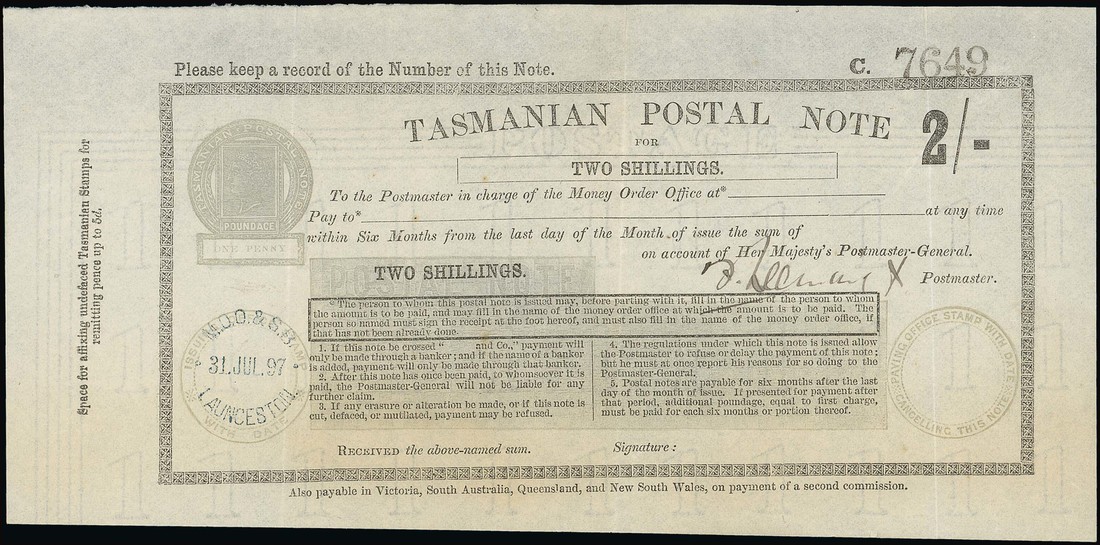 Please keep a record of the Number of this Note.
C. 7649
TASMANIAN POSTAL NOTE 2/-
FOR
TWO SHILLINGS.
To the Postmaster in charge of the Money Order Office at*
Pay to* at any time
within Six Months from the last day of the Month of issue the sum of
on account of Her Majesty's Postmaster-General.
Postmaster.
TASMANIAN POSTAL NOTE
POUNDAGE
ONE PENNY
POSTAL NOTE
TWO SHILLINGS.
*The person to whom this postal note is issued may, before parting with it, fill in the name of the person to whom
the amount is to be paid, and may fill in the name of the money order office at which the amount is to be paid. The
person so named must sign the receipt at the foot hereof, and must also fill in the name of the money order office, if
that has not been already done.
1. If this note be crossed " and Co.," payment will
only be made through a banker; and if the name of a banker
is added, payment will only be made through that banker.
2. After this note has once been paid, to whomsoever it is
paid, the Postmaster-General will not be liable for any
further claim.
3. If any erasure or alteration be made, or if this note is
cut, defaced, or mutilated, payment may be refused.
4. The regulations under which this note is issued allow
the Postmaster to refuse or delay the payment of this note;
but he must at once report his reasons for so doing to the
Postmaster-General.
5. Postal notes are payable for six months after the last
day of the month of issue. If presented for payment after
that period, additional poundage, equal to first charge,
must be paid for each six months or portion thereof.
ISSUING STAMP
WITH DATE
M.O.O. & S.B.
31 JUL 97
LAUNCESTON
PAYING OFFICE STAMP WITH DATE
CANCELLING THIS NOTE
RECEIVED the above-named sum. Signature:
Also payable in Victoria, South Australia, Queensland, and New South Wales, on payment of a second commission.
Space for affixing undefaced Tasmanian Stamps for
remitting pence up to 5d.